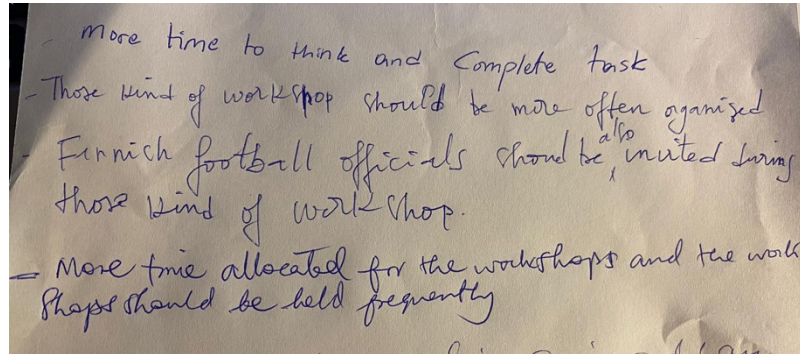 - more time to think and Complete task
- Those kind of workshop should be more often oganized
- Finnich football officials shoud be also invited during
those kind of work-shop.
- More time allocated for the workshops and the work
shops should be held frequently